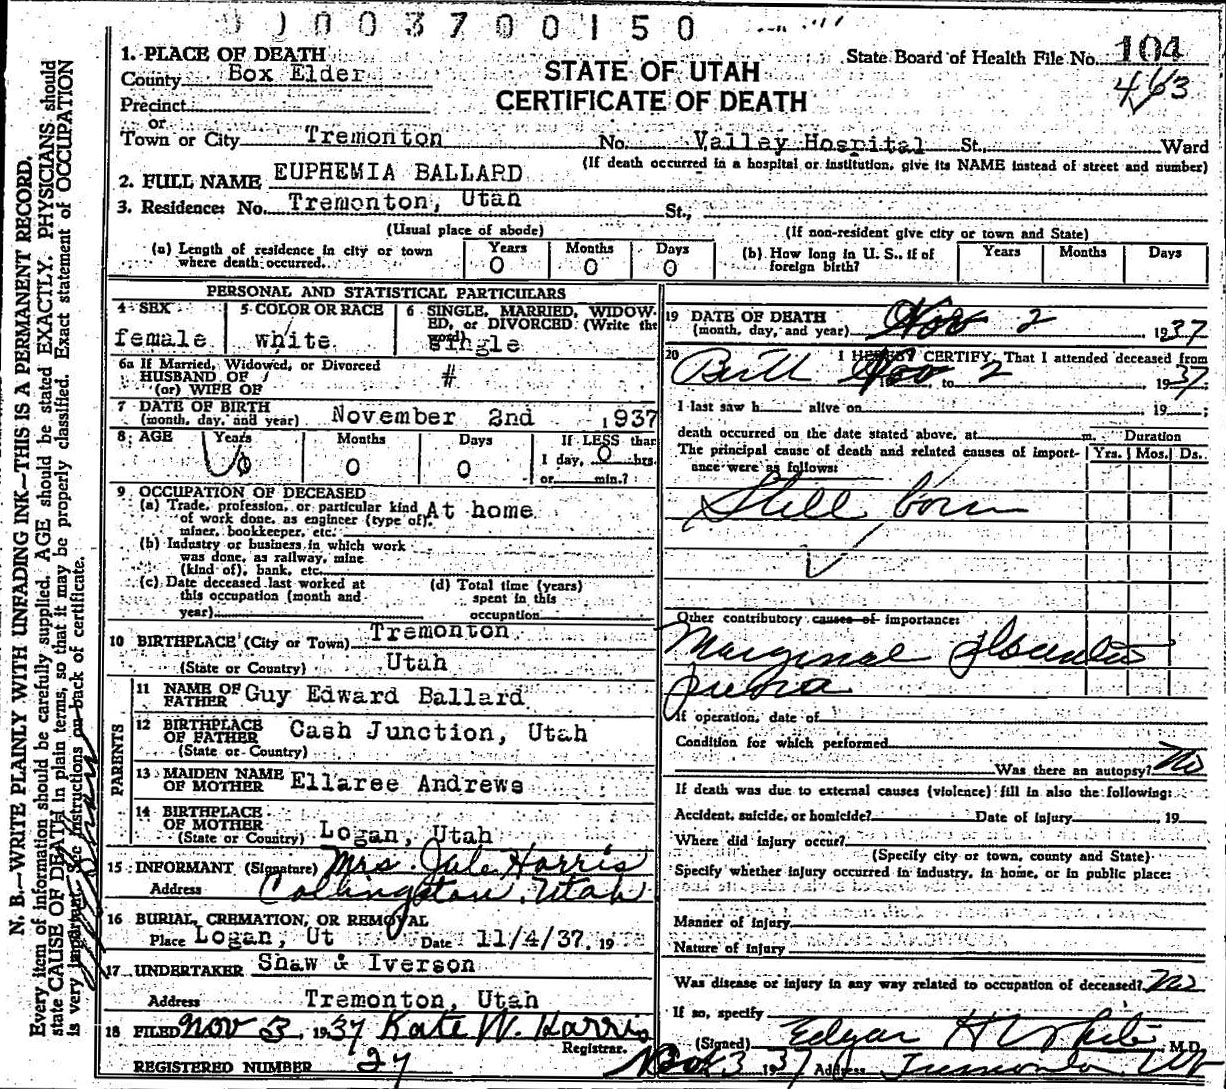 0 0 0 3 7 0 0 1 5 0
1. PLACE OF DEATH
County Box Elder
State Board of Health File No. 104
463
STATE OF UTAH
CERTIFICATE OF DEATH
Precinct
or
Town or City Tremonton No. Valley Hospital St., Ward
(If death occurred in a hospital or institution, give its NAME instead of street and number)
2. FULL NAME EUPHEMIA BALLARD
3. Residence: No. Tremonton, Utah St.,
(Usual place of abode) (If non-resident give city or town and State)
(a) Length of residence in city or town where death occurred. Years 0 Months 0 Days 0
(b) How long in U. S., if of foreign birth? Years Months Days
PERSONAL AND STATISTICAL PARTICULARS
4 SEX female
5 COLOR OR RACE white
6 SINGLE, MARRIED, WIDOWED, or DIVORCED (Write the word) single
6a If Married, Widowed, or Divorced
HUSBAND OF
(or) WIFE OF #
7 DATE OF BIRTH
(month, day, and year) November 2nd 1937
8 AGE Years 0 Months 0 Days 0 If LESS than
1 day, 0 hrs.
or min.?
9 OCCUPATION OF DECEASED
(a) Trade, profession, or particular kind At home
of work done, as engineer (type of),
miner, bookkeeper, etc.
(b) Industry or business in which work
was done, as railway, mine
(kind of), bank, etc.
(c) Date deceased last worked at
this occupation (month and
year)
(d) Total time (years)
spent in this
occupation
10 BIRTHPLACE (City or Town) Tremonton
(State or Country) Utah
PARENTS
11 NAME OF FATHER Guy Edward Ballard
12 BIRTHPLACE OF FATHER Cash Junction, Utah
(State or Country)
13 MAIDEN NAME OF MOTHER Ellaree Andrews
14 BIRTHPLACE OF MOTHER
(State or Country) Logan, Utah
15 INFORMANT (Signature) Mrs. Jule Harris
Address Collingston, Utah
16 BURIAL, CREMATION, OR REMOVAL
Place Logan, Ut Date 11/4/37. 19
17 UNDERTAKER Shaw & Iverson
Address Tremonton, Utah
18 FILED Nov 3, 1937 Kate W. Harris
Registrar.
REGISTERED NUMBER 27
19 DATE OF DEATH
(month, day, and year) Nov 2 1937
20 I HEREBY CERTIFY, That I attended deceased from
Birth Nov 2, to 1937;
I last saw h alive on 19 ;
death occurred on the date stated above, at m. Duration
The principal cause of death and related causes of importance were as follows: Yrs. Mos. Ds.
Still born
Other contributory causes of importance:
Marginal Placenta
previa
If operation, date of
Condition for which performed
Was there an autopsy? No
If death was due to external causes (violence) fill in also the following:
Accident, suicide, or homicide? Date of injury 19
Where did injury occur?
(Specify city or town, county and State)
Specify whether injury occurred in industry, in home, or in public place:
Manner of injury
Nature of injury
Was disease or injury in any way related to occupation of deceased? No
If so, specify
(Signed) Edgar H White M.D.
Nov 3 1937 Address Tremonton Ut
N. B.—WRITE PLAINLY WITH UNFADING INK—THIS IS A PERMANENT RECORD.
Every item of information should be carefully supplied. AGE should be stated EXACTLY. PHYSICIANS should
state CAUSE OF DEATH in plain terms, so that it may be properly classified. Exact statement of OCCUPATION
is very important. See instructions on back of certificate.